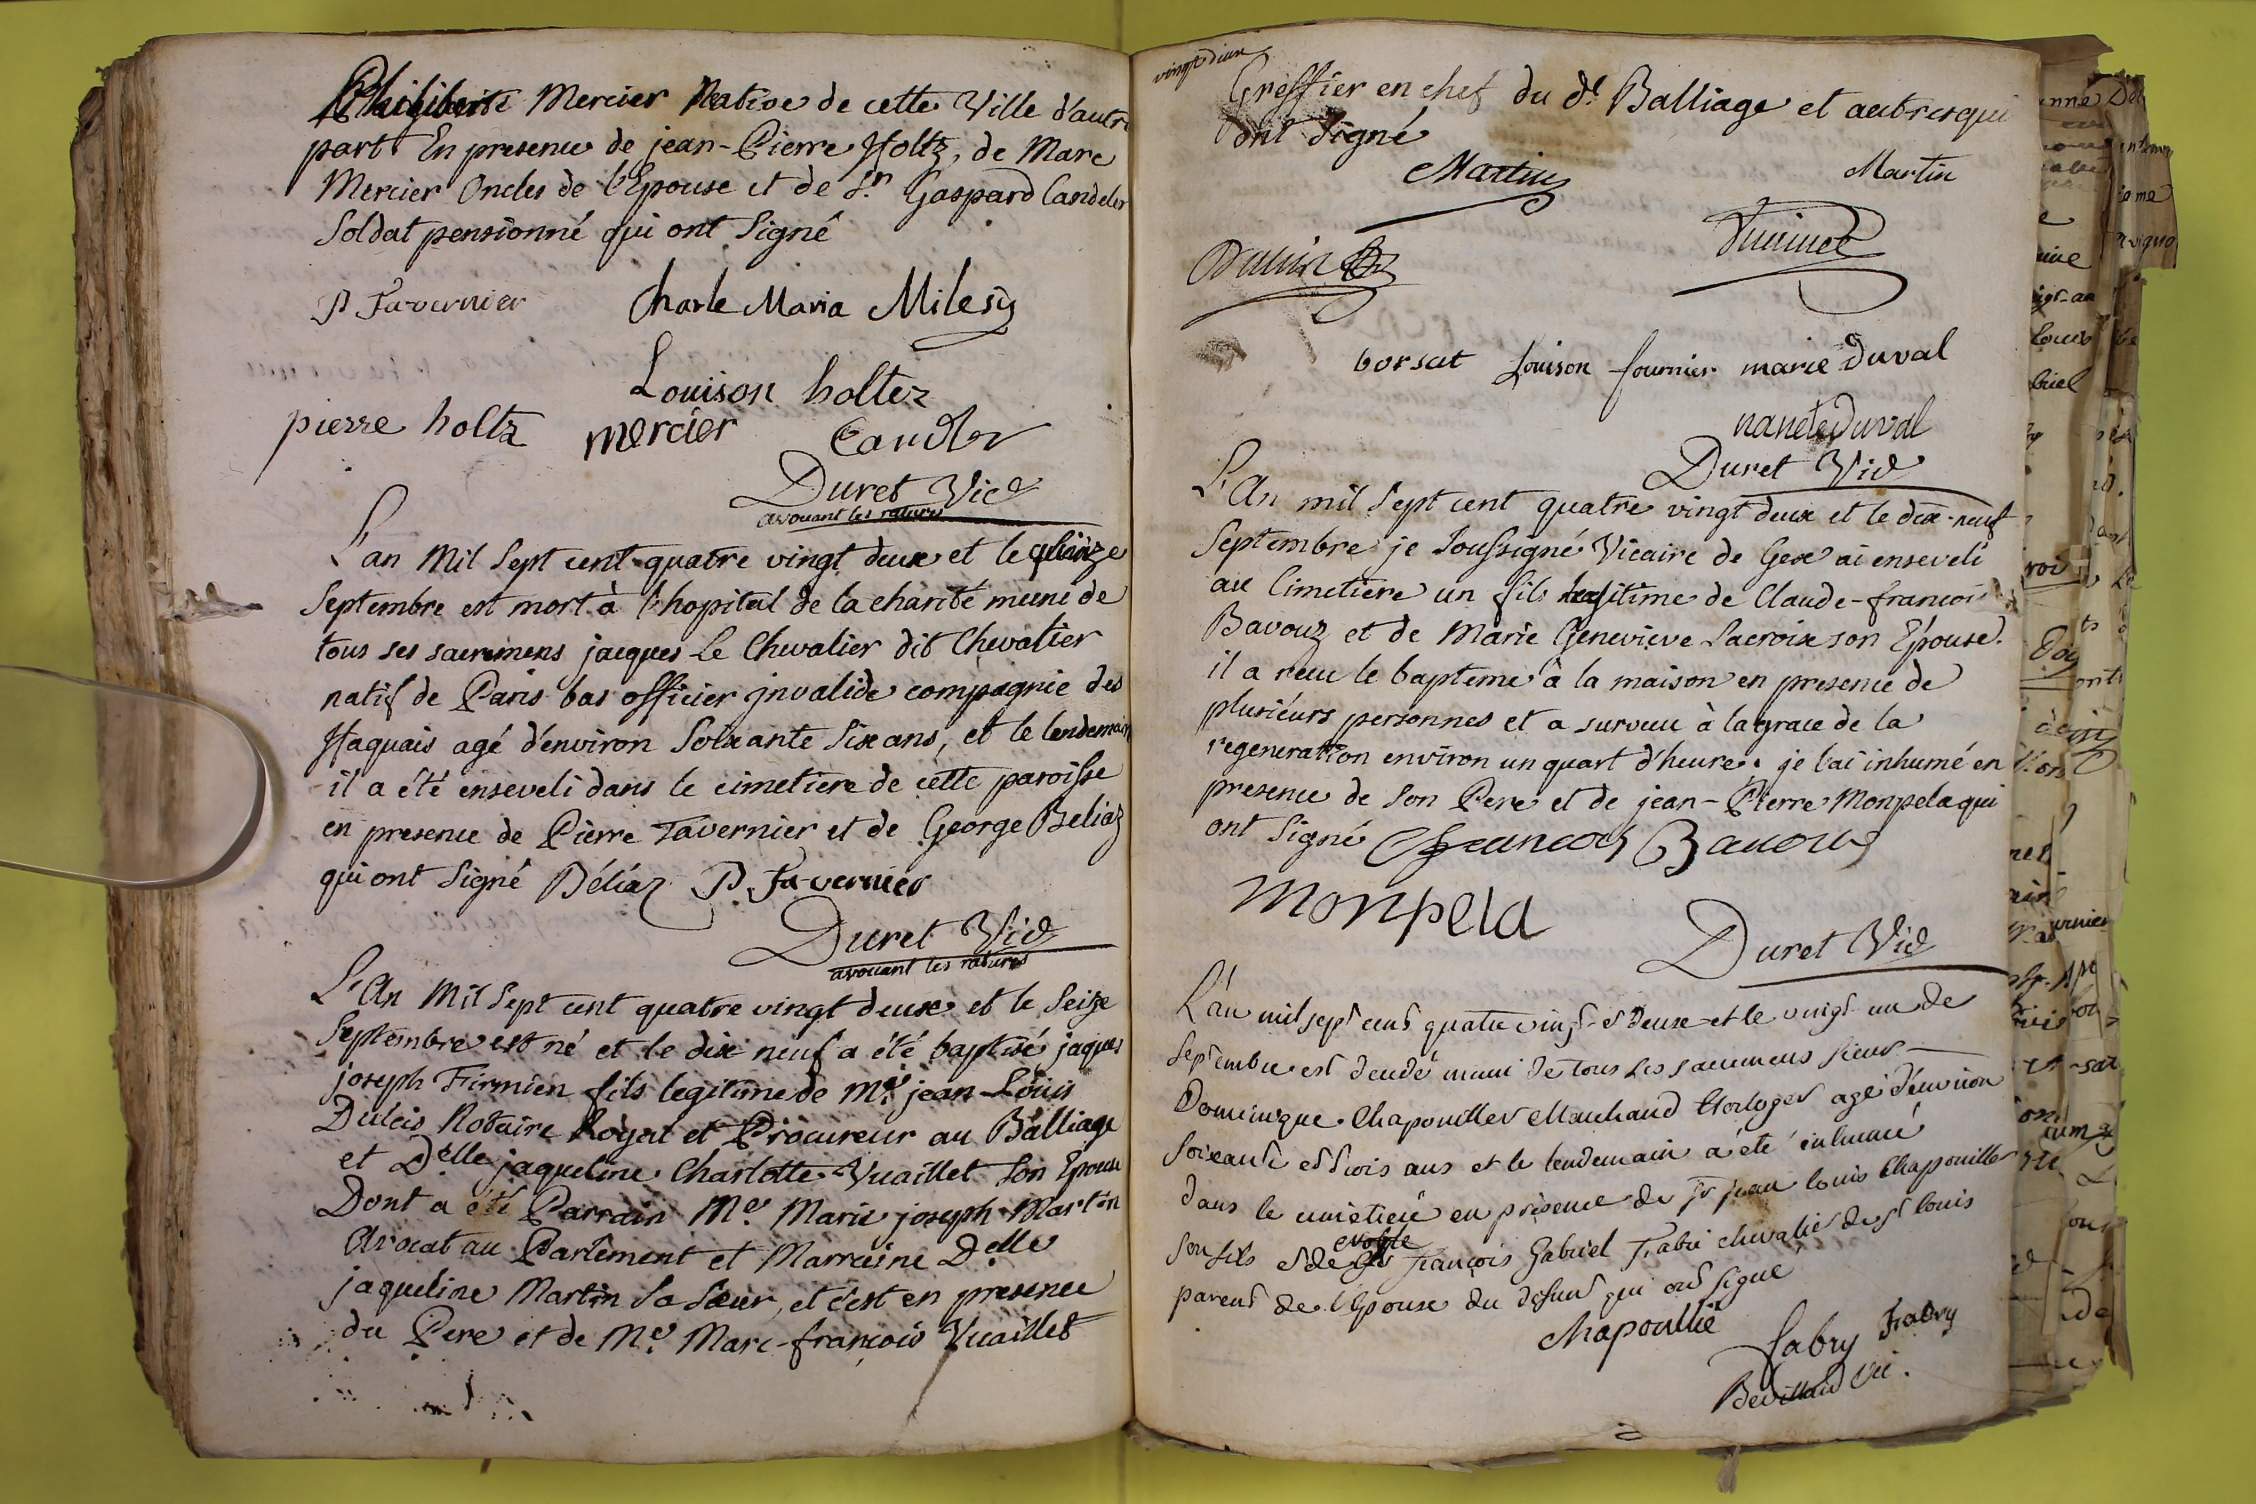 Philiberte Mercier Native de cette Ville d'autre
part En presence de jean-Pierre Holtz, de Marc
Mercier Oncles de l'Epouse et de Sr. Gaspard Candeler
Soldat pensionné qui ont Signé
P Tavernier Charle Maria Milesy
Louison holtez
pierre holtz mercier Candler
Duret Vic
avouant les ratures
L'an Mil Sept cent quatre vingt deux et le quinze
Septembre est mort à l'hopital de la charité muni de
tous ses sacremens jacques Le Chevalier dit Chevalier
natif de Paris bas officier jnvalide compagnie des
Haquais agé d'environ Soixante Six ans, et le lendemain
il a été enseveli dans le cimetiere de cette paroisse
en presence de Pierre Tavernier et de George Beliaz
qui ont Signé Béliaz P. Tavernier
Duret Vic
avouant les ratures
L'An Mil Sept cent quatre vingt deux et le Seize
Septembre est né et le dix neuf a été baptisé jaques
joseph Firmien fils legitime de Me. jean-Louis
Dulcis Notaire Royal et Procureur au Balliage
et Delle jaqueline Charlotte Vuaillet Son Epouse
Dont a été Parrain Me. Marie joseph Martin
Avocat au Parlement et Marraine Delle
jaqueline Martin Sa Sœur, et c'est en presence
du Pere et de Me. Marc-françois Vuaillet
vingt d'eux
Greffier en chef du dt. Balliage et autres qui
ont Signé
Martin Martin
borsat Louison fournier marie Duval
nanete Duval
Duret Vic
L'An mil Sept cent quatre vingt deux et le dix-neuf
Septembre je Soussigné Vicaire de Gex ai enseveli
au Cimetiere un fils legitime de Claude-françois
Bavouz et de Marie Genevieve Lacroix son Epouse.
il a recu le bapteme à la maison en presence de
plusiéurs personnes et a survecu à la grace de la
regeneration environ un quart d'heure. je l'ai inhumé en
presence de Son Pere et de jean-Pierre Monpela qui
ont Signé francois Bauouz
Monpela
Duret Vic
L'an mil sept cent quatre vingt et deux et le vingt un de
Septembre est decedé muni de tous les sacremens sieur
Dominique Chapouiller Marchand Horloger agé d'environ
Soixante et trois ans et le lendemain a été inhumé
dans le cimetiere en présence de sr jean louis Chapouiller
son fils et de noble françois Gabriel Fabri chevalier de st louis
parent de l'Epouse du defunt qui ont signé
chapouillié
fabry Fabry
Bevillard Vi.